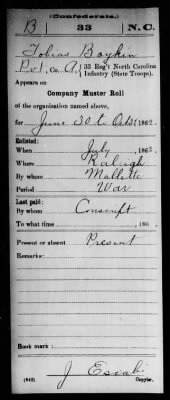 (Confederate.)
B | 33 | N.C.
Tobias Boykin
Pvt, Co. A, 33 Reg't North Carolina
Infantry (State Troops).
Appears on
Company Muster Roll
of the organization named above,
for June 30 to Oct 31, 1862.
Enlisted:
When July, 1862.
Where Raleigh
By whom Mallett
Period War
Last paid:
By whom Conscript
To what time , 186 .
Present or absent Present
Remarks:
Book mark:
(642) Copyist.